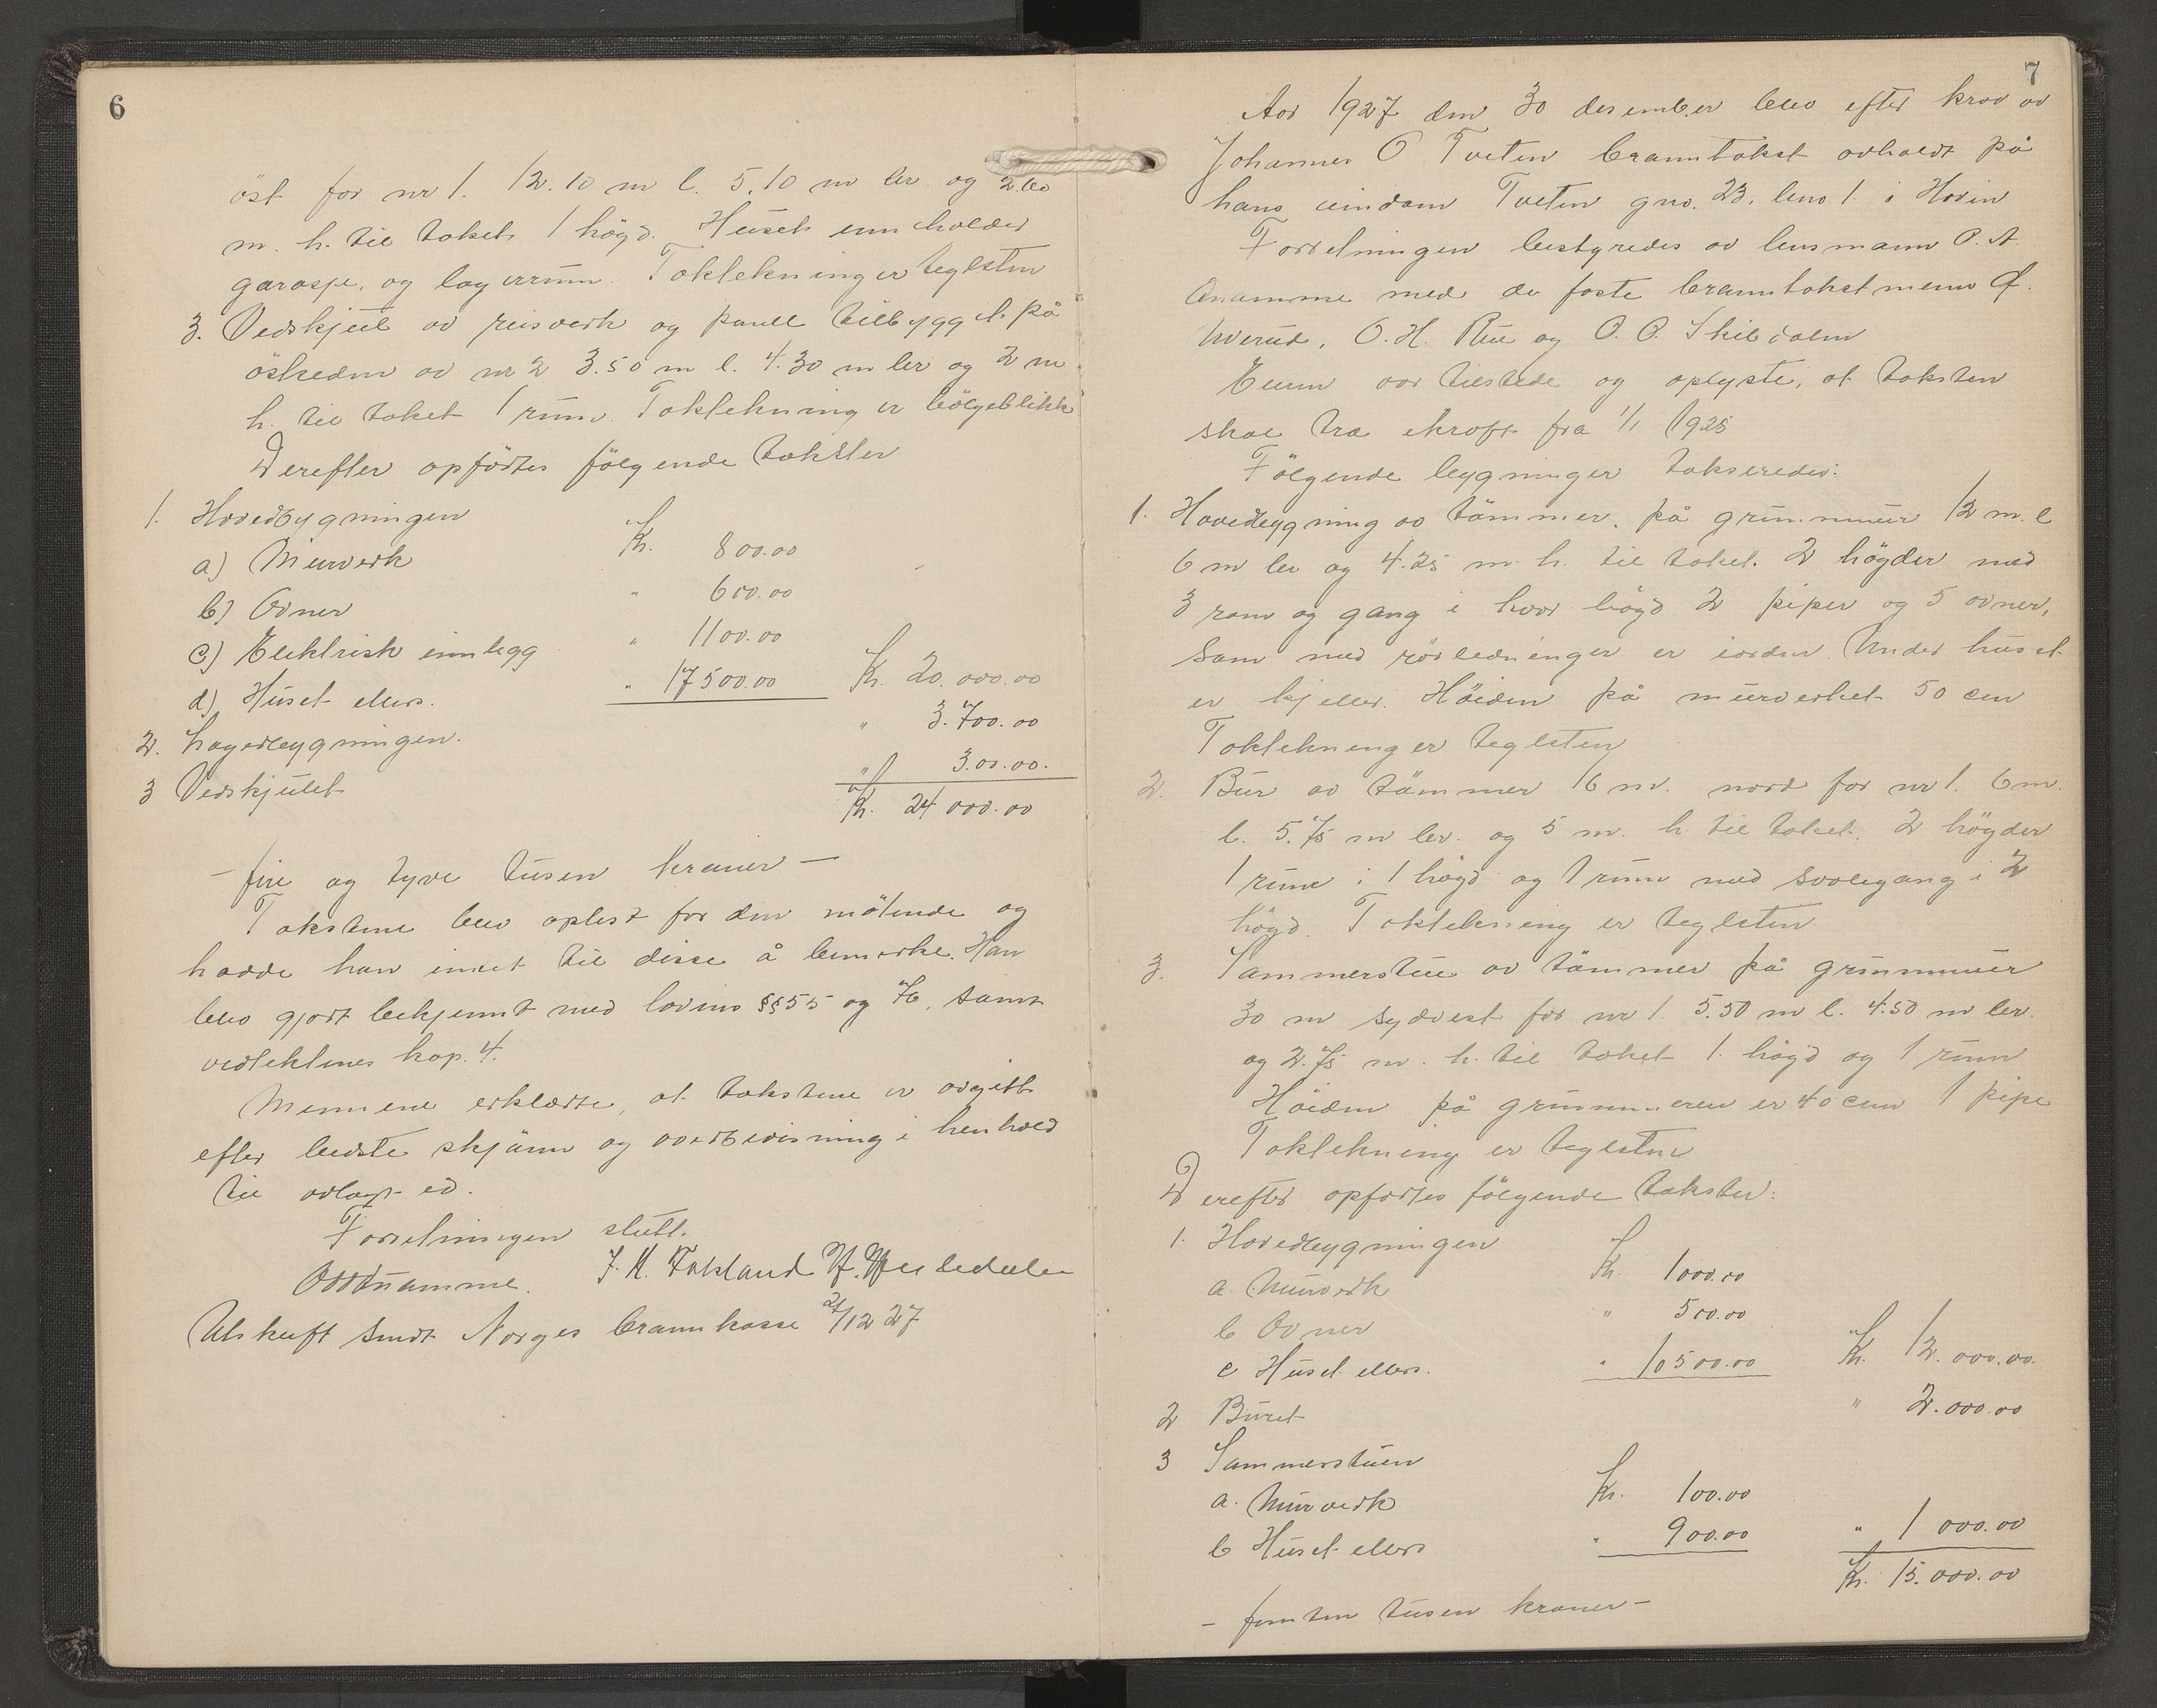 6
öst for nr 1. 12.10 m l. 5.10 m br og 2.60
m. h. til taket 1 högd. Huset inneholder
garasje, og lagerrum. Taktekning er teglsten
3. Vedskjul av reisverk og panel tilbygget på
östsiden av nr 2 3.50 m l. 4.30 m br og 2 m
h. til taket 1 rum. Taktekning er bölgeblikk
Derefter opförtes fölgende takster
1. Hovedbygningen
a) Murverk Kr. 800.00
b) Ovner " 600.00
c) Elektrisk innlegg " 1100.00
d) Huset ellers. " 17500.00 Kr. 20.000.00
2. Lagerbygningen. " 3.700.00
3 Vedskjulet " 300.00.
Kr. 24000.00
- fire og tyve tusen kroner -
Takstene blev oplest for den mötende og
hadde han intet til disse å bemerke. Han
blev gjort bekjennt med lovens §§ 55 og 76, samt
vedtektenes kap. 4.
Mennene erklærte, at takstene er avgitt
efter beste skjönn og overbevisning i henhold
til avlagt ed.
Forretningen slutt.
J. K. Fakland
Utskrift sendt Norges brannkasse 21/12 27
7
Aar 1927 den 30 desember blev efter krav av
Johannes O Tveten branntakst avholdt på
hans eiendom Tveten gno. 23, bno 1. i Hovin
Forretningen bestyredes av lensmann O. A.
Anamme med de faste branntakstmenn
O. H. Rue og O. O. Skibdalen
Eieren var tilstede og oplyste, at taksten
skal tra ikraft fra 1/1 1928
Fölgende bygninger takseredes:
1. Hovedbygning av tömmer, på grunnmur 12 m. l
6 m br og 4.25 m. h. til taket. 2 högder med
3 rom og gang i hver högd 2 piper og 5 ovner,
som med rörledninger er iorden. Under huset
er kjeller. Höiden på murverket 50 cm
Taktekning er teglsten
2. Bur av tömmer 16 m. nord for nr 1. 6 m.
l. 5.75 m br. og 5 m. h. til taket. 2 högder
1 rum i 1 högd og 1 rum med svalegang i 2
högd. Taktekning er teglsten
3. Sommerstue av tömmer på grunnmur
30 m sydvest for nr 1. 5.50 m l. 4.50 m br.
og 2.75 m. h. til taket 1. högd og 1 rum
Höiden på grunnmuren er 40 cm 1 pipe
Taktekning er teglsten
Derefter opförtes fölgende takster:
1. Hovedbygningen
a. Murverk Kr. 1000.00
b Ovner " 500.00
c Huset ellers. " 10500.00 Kr. 12.000.00.
2 Buret " 2.000.00
3 Sommerstuen
a. Murverk Kr. 100.00
b Huset ellers " 900.00 " 1 000.00
Kr. 15.000.00
- femten tusen kroner -